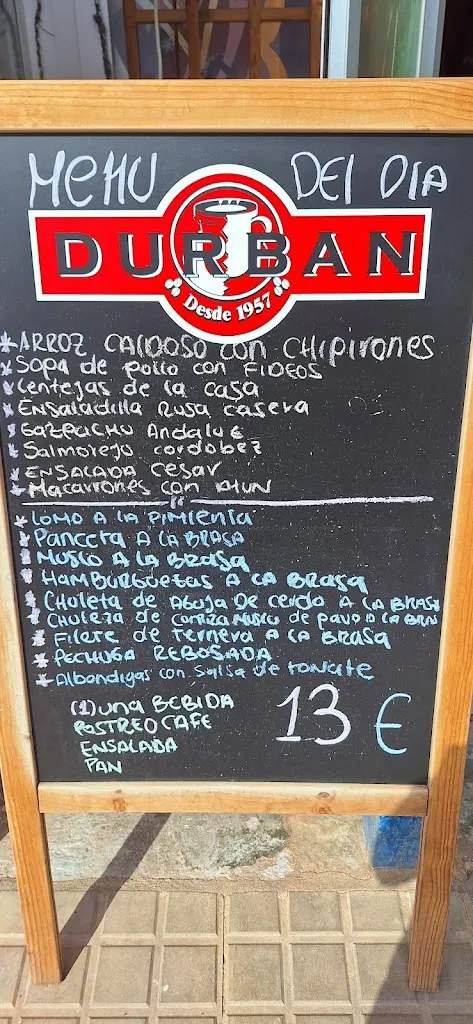 MENU DEL DIA
DURBAN
Desde 1957
*ARROZ CALDOSO con CHIPIRONES
*Sopa de pollo con FIDEOS
*Lentejas de la casa
*Ensaladilla Rusa casera
*GAZPACHO Andaluz
*Salmorejo cordobez
*ENSALADA Cesar
*Macarrones con ATUN
*LOMO A LA PIMIENTA
*Panceta A LA BRASA
*MUSLO A la BRASA
*HAMBURGUESAS A LA BRASA
*Chuleta de AGUJA DE cerdo A LA BRASA
*CHULEZA de MUSLO de pavo A LA BRAS
*Filete de Ternera A LA BRASA
*PECHUGA REBOSADA
*Albondigas con salsa de tomate
(1) una BEBIDA
POSTRE O CAFE
ENSALADA
PAN
13 €